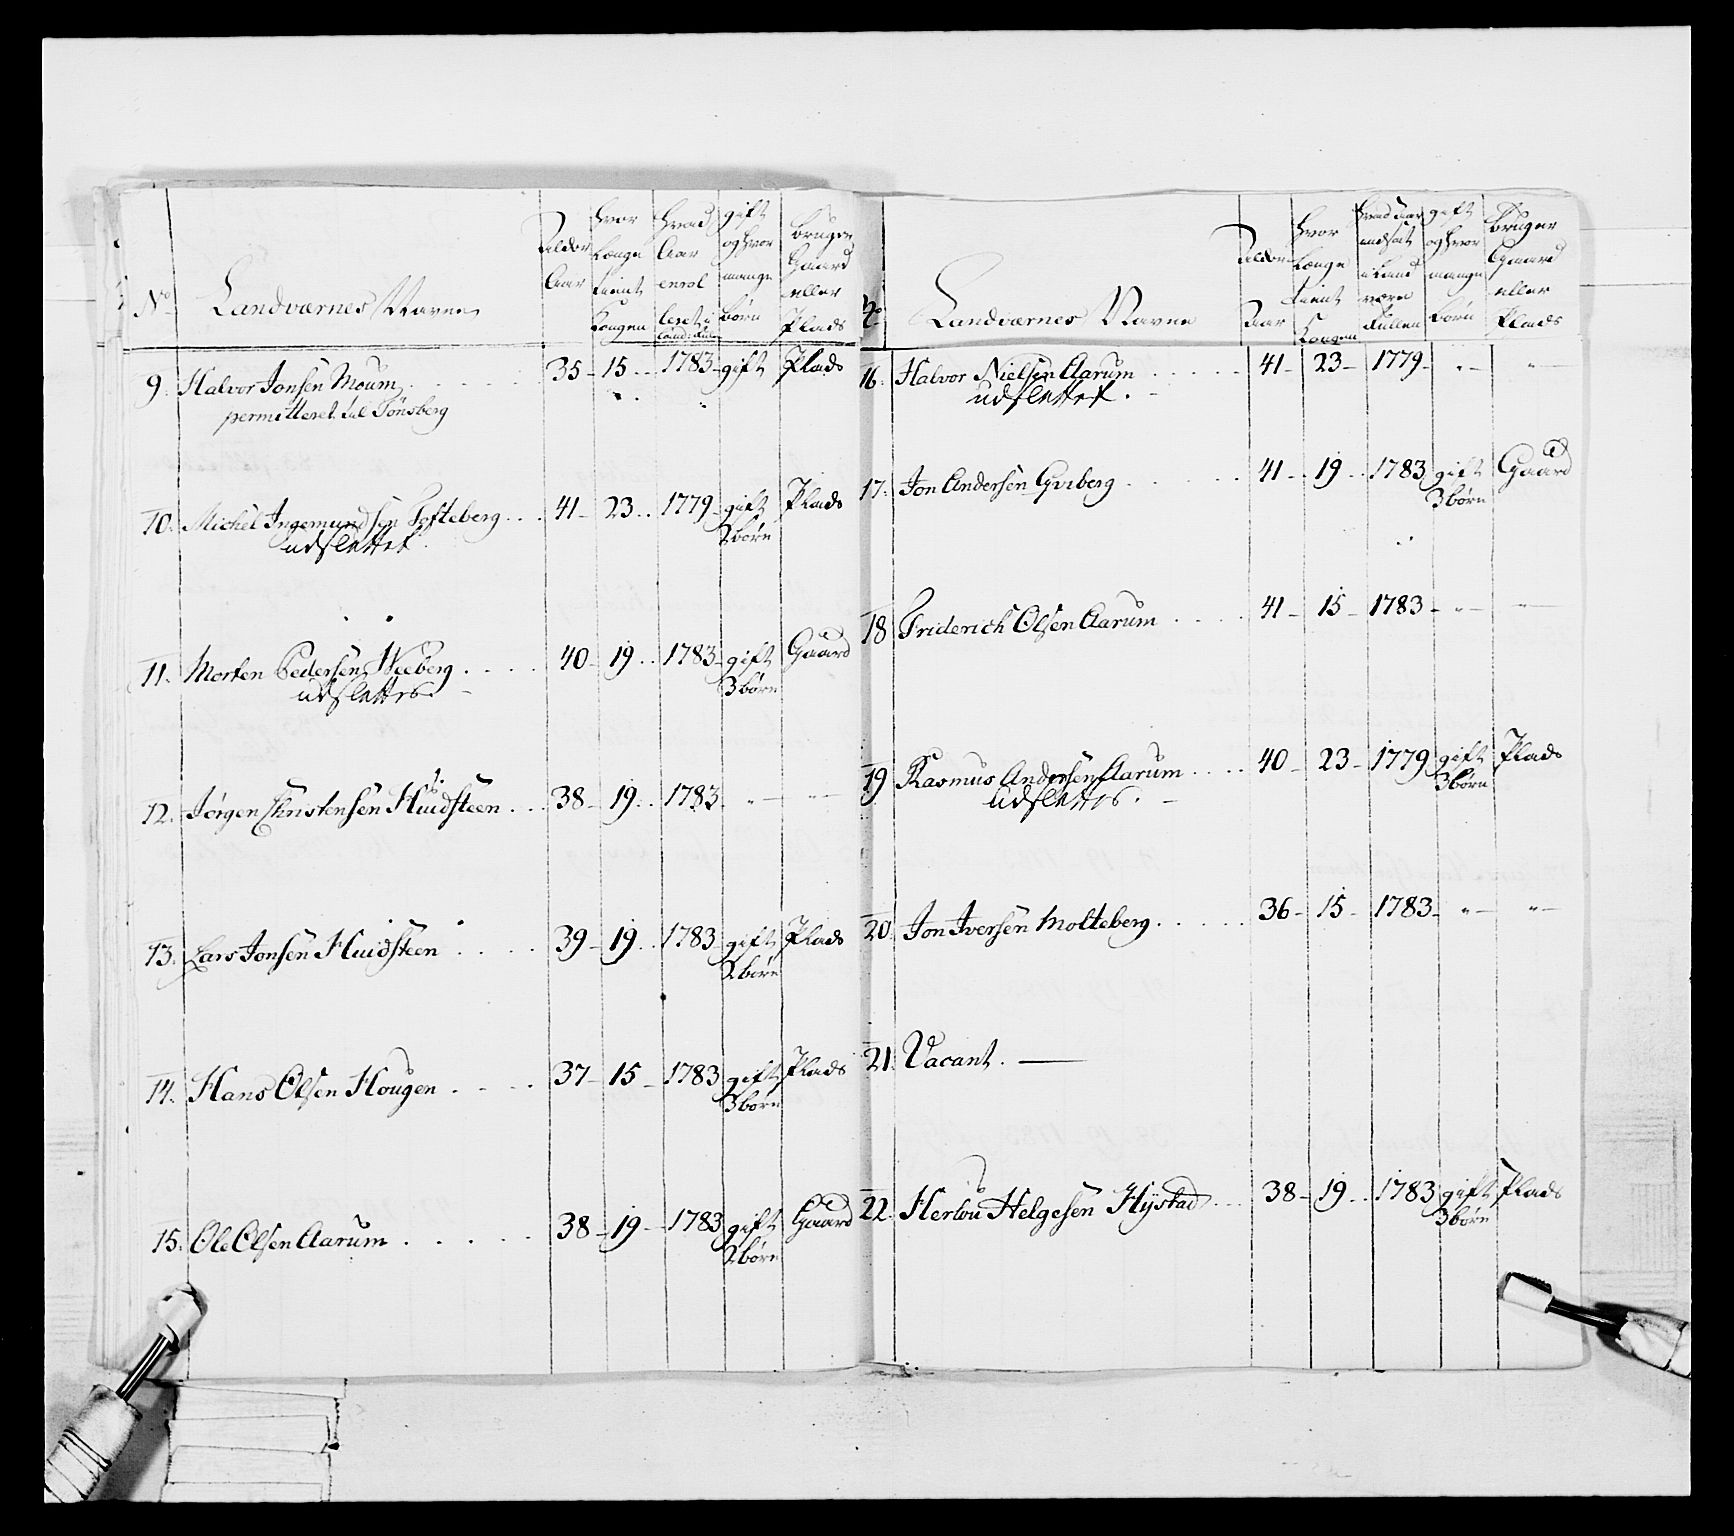 No Landværnes Navne Alder Aar hvor Længe tient Kongen hvad Aar enrolleret i Land: Rul: gift og hvor mange Børn bruger Gaard eller Plads
9. Halvor Jonsen Moum 35 15 1783 gift Plads
permitteret til Tönsberg
10. Michel Ingemundsen Tofteberg 41 23 1779 gift Plads
udslettet 2 børn
11. Morten Pedersen Weeberg 40 19 1783 gift Gaard
udslettes 3 børn
12. Jørgen Christensen Huidsteen 38 19 1783 " "
13. Lars Jonsen Huidsteen 39 19 1783 gift Plads
2 børn
14. Hans Olsen Hougen 37 15 1783 gift Plads
3 børn
15. Ole Olsen Aarum 38 19 1783 gift Gaard
2 børn
No Landværnes Navne Alder Aar hvor Længe tient Kongen hvad Aar indsat i Land værn Rullen gift og hvor mange Børn Bruger Gaard eller Plads
16. Halvor Nielsen Aarum 41 23 1779 " "
udslettet.
17. Jon Andersen Griberg 41 19 1783 gift Gaard
3 børn
18 Friderich Olsen Aarum 41 15 1783 " "
19 Rasmus Andersen Aarum 40 23 1779 gift Plads
udslettes. 3 børn
20. Jon Iversen Molteberg 36 15 1783 " "
21. Vacant.
22. Herlou Helgesen Hÿstad 38 19 1783 gift Plads
3 børn